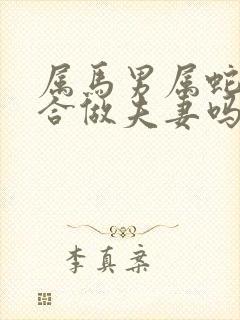 属馬男属蛇
合做夫妻吗
李真案